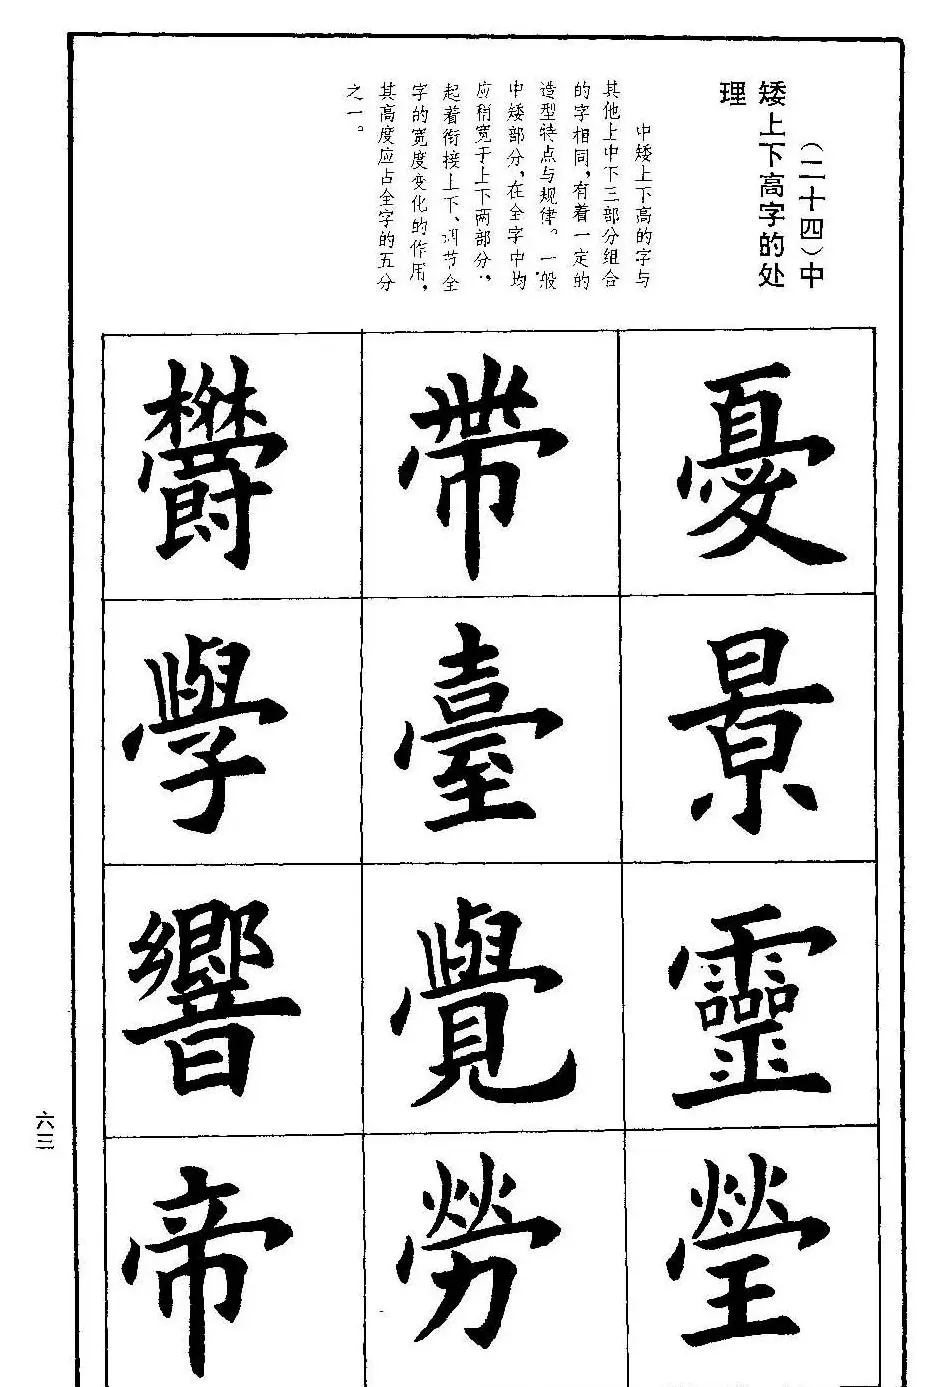 （二十四）中
矮上下高字的处
理
中矮上下高的字与
其他上中下三部分组合
的字相同，有着一定的
造型特点与规律。一般
中矮部分，在全字中均
应稍宽于上下两部分，
起着衔接上下、调节全
字的宽度变化的作用，
其高度应占全字的五分
之一。
憂
景
靈
瑩
帶
臺
覺
勞
學
響
帝
六三